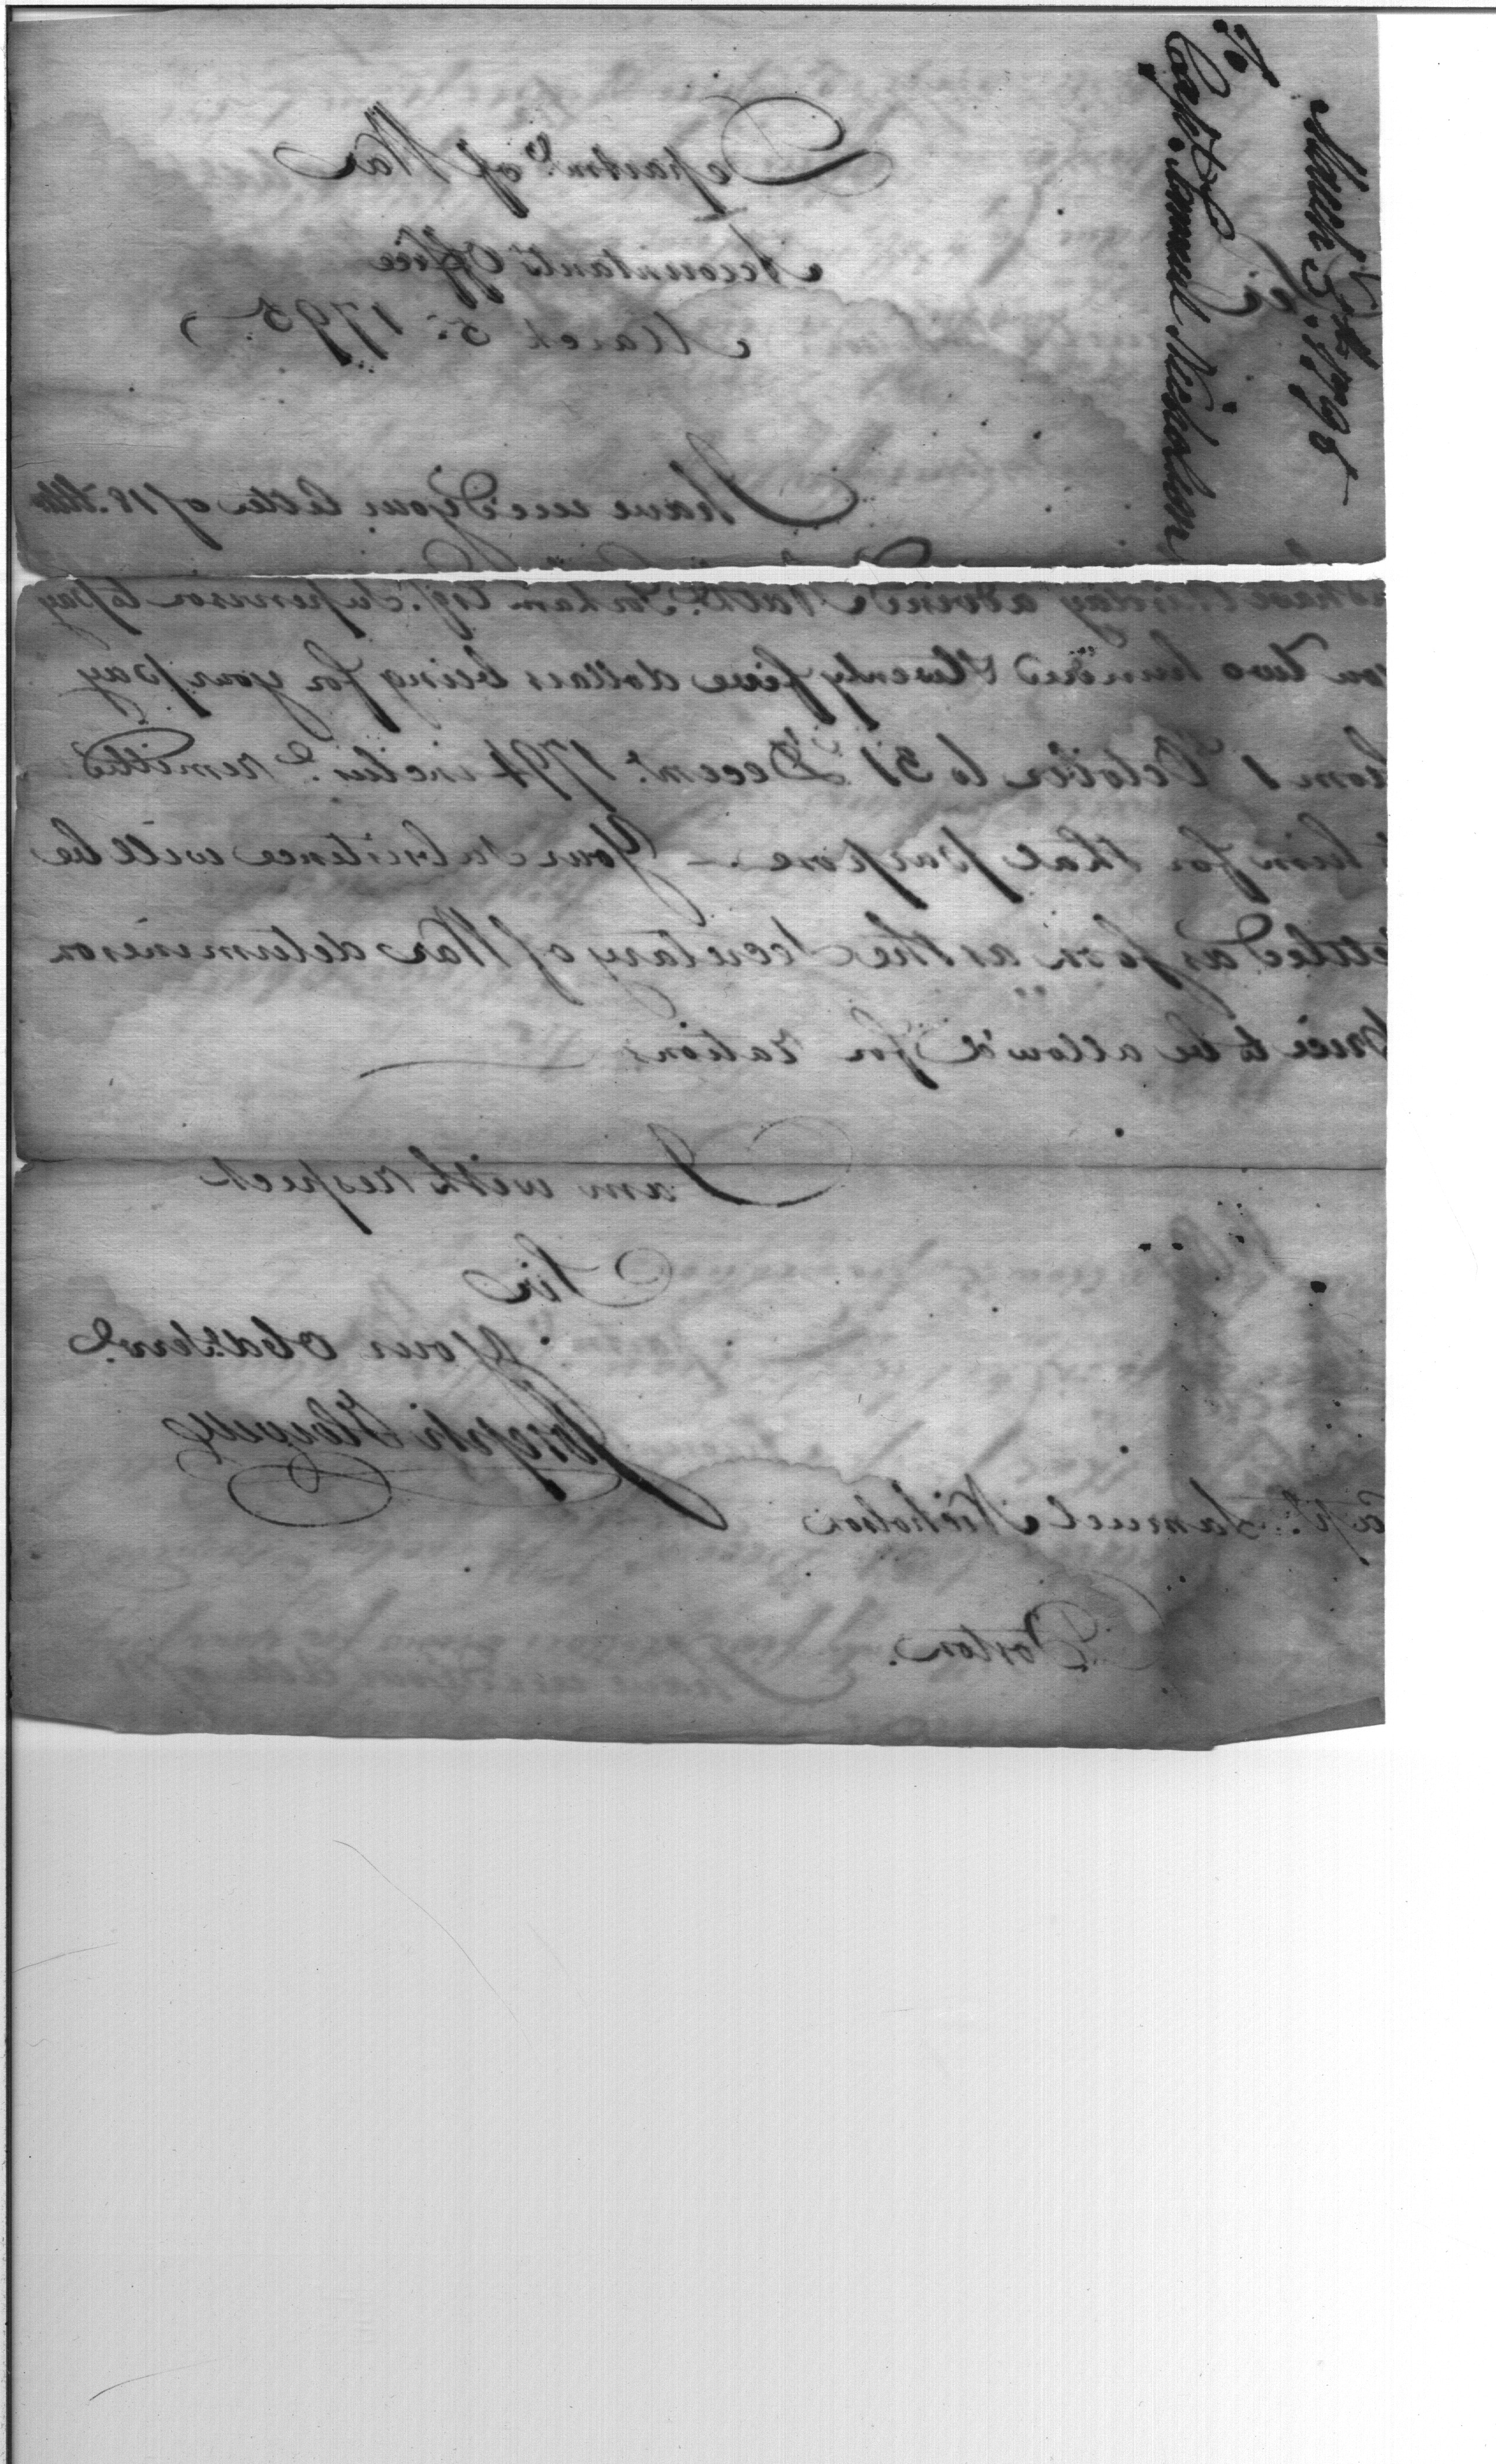 To
Capt. Samuel Nicholson
March 5th 1795
Departmt. of War
Accountants Office
March 5. 1795
Sir
I have reced your letter of 18. Ulto
have this day advised Nathl. Gorham Esqr. Supervisor to pay
you two hundred & twenty five dollars being for your pay
from 1 October to 31 Decemr. 1794 inclusive remitted
him for that purpose — Your subsistence will be
settled as soon as the Secretary of War determines on
price to be allow'd for rations
I am with respect
Sir
Your obdt. Servt.
Joseph Howell
Capt. Samuel Nicholson
Boston.